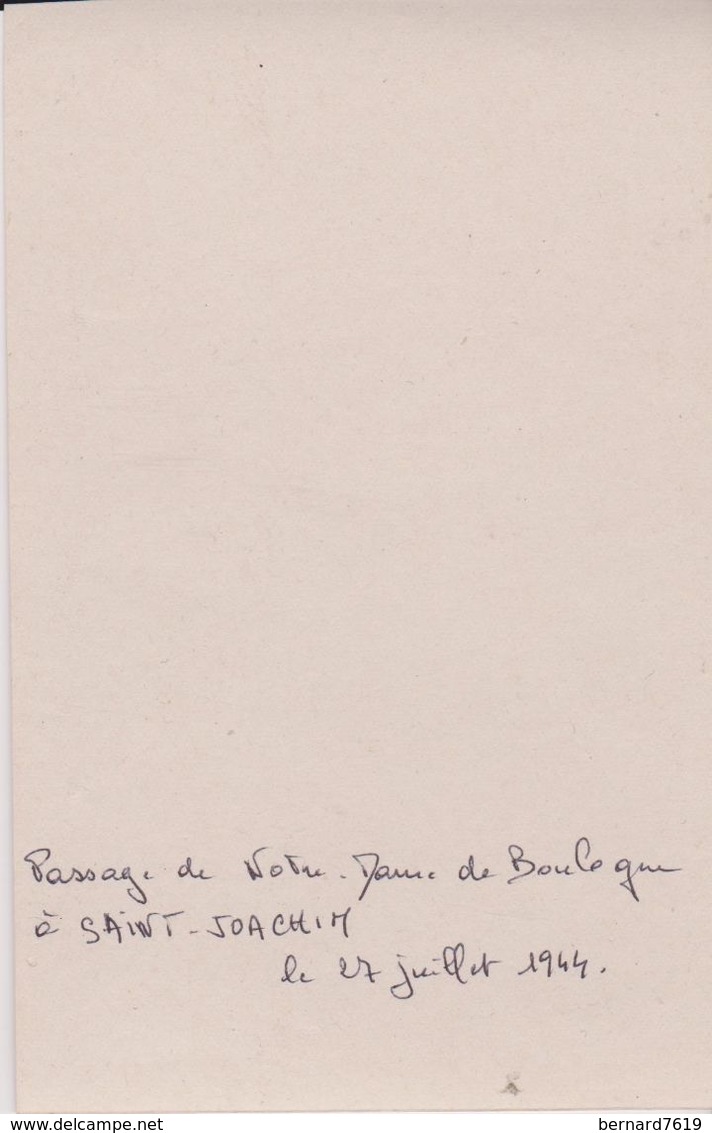 Passage de Notre-Dame de Boulogne
à SAINT-JOACHIM
le 27 juillet 1944.
www.delcampe.net
bernard7619